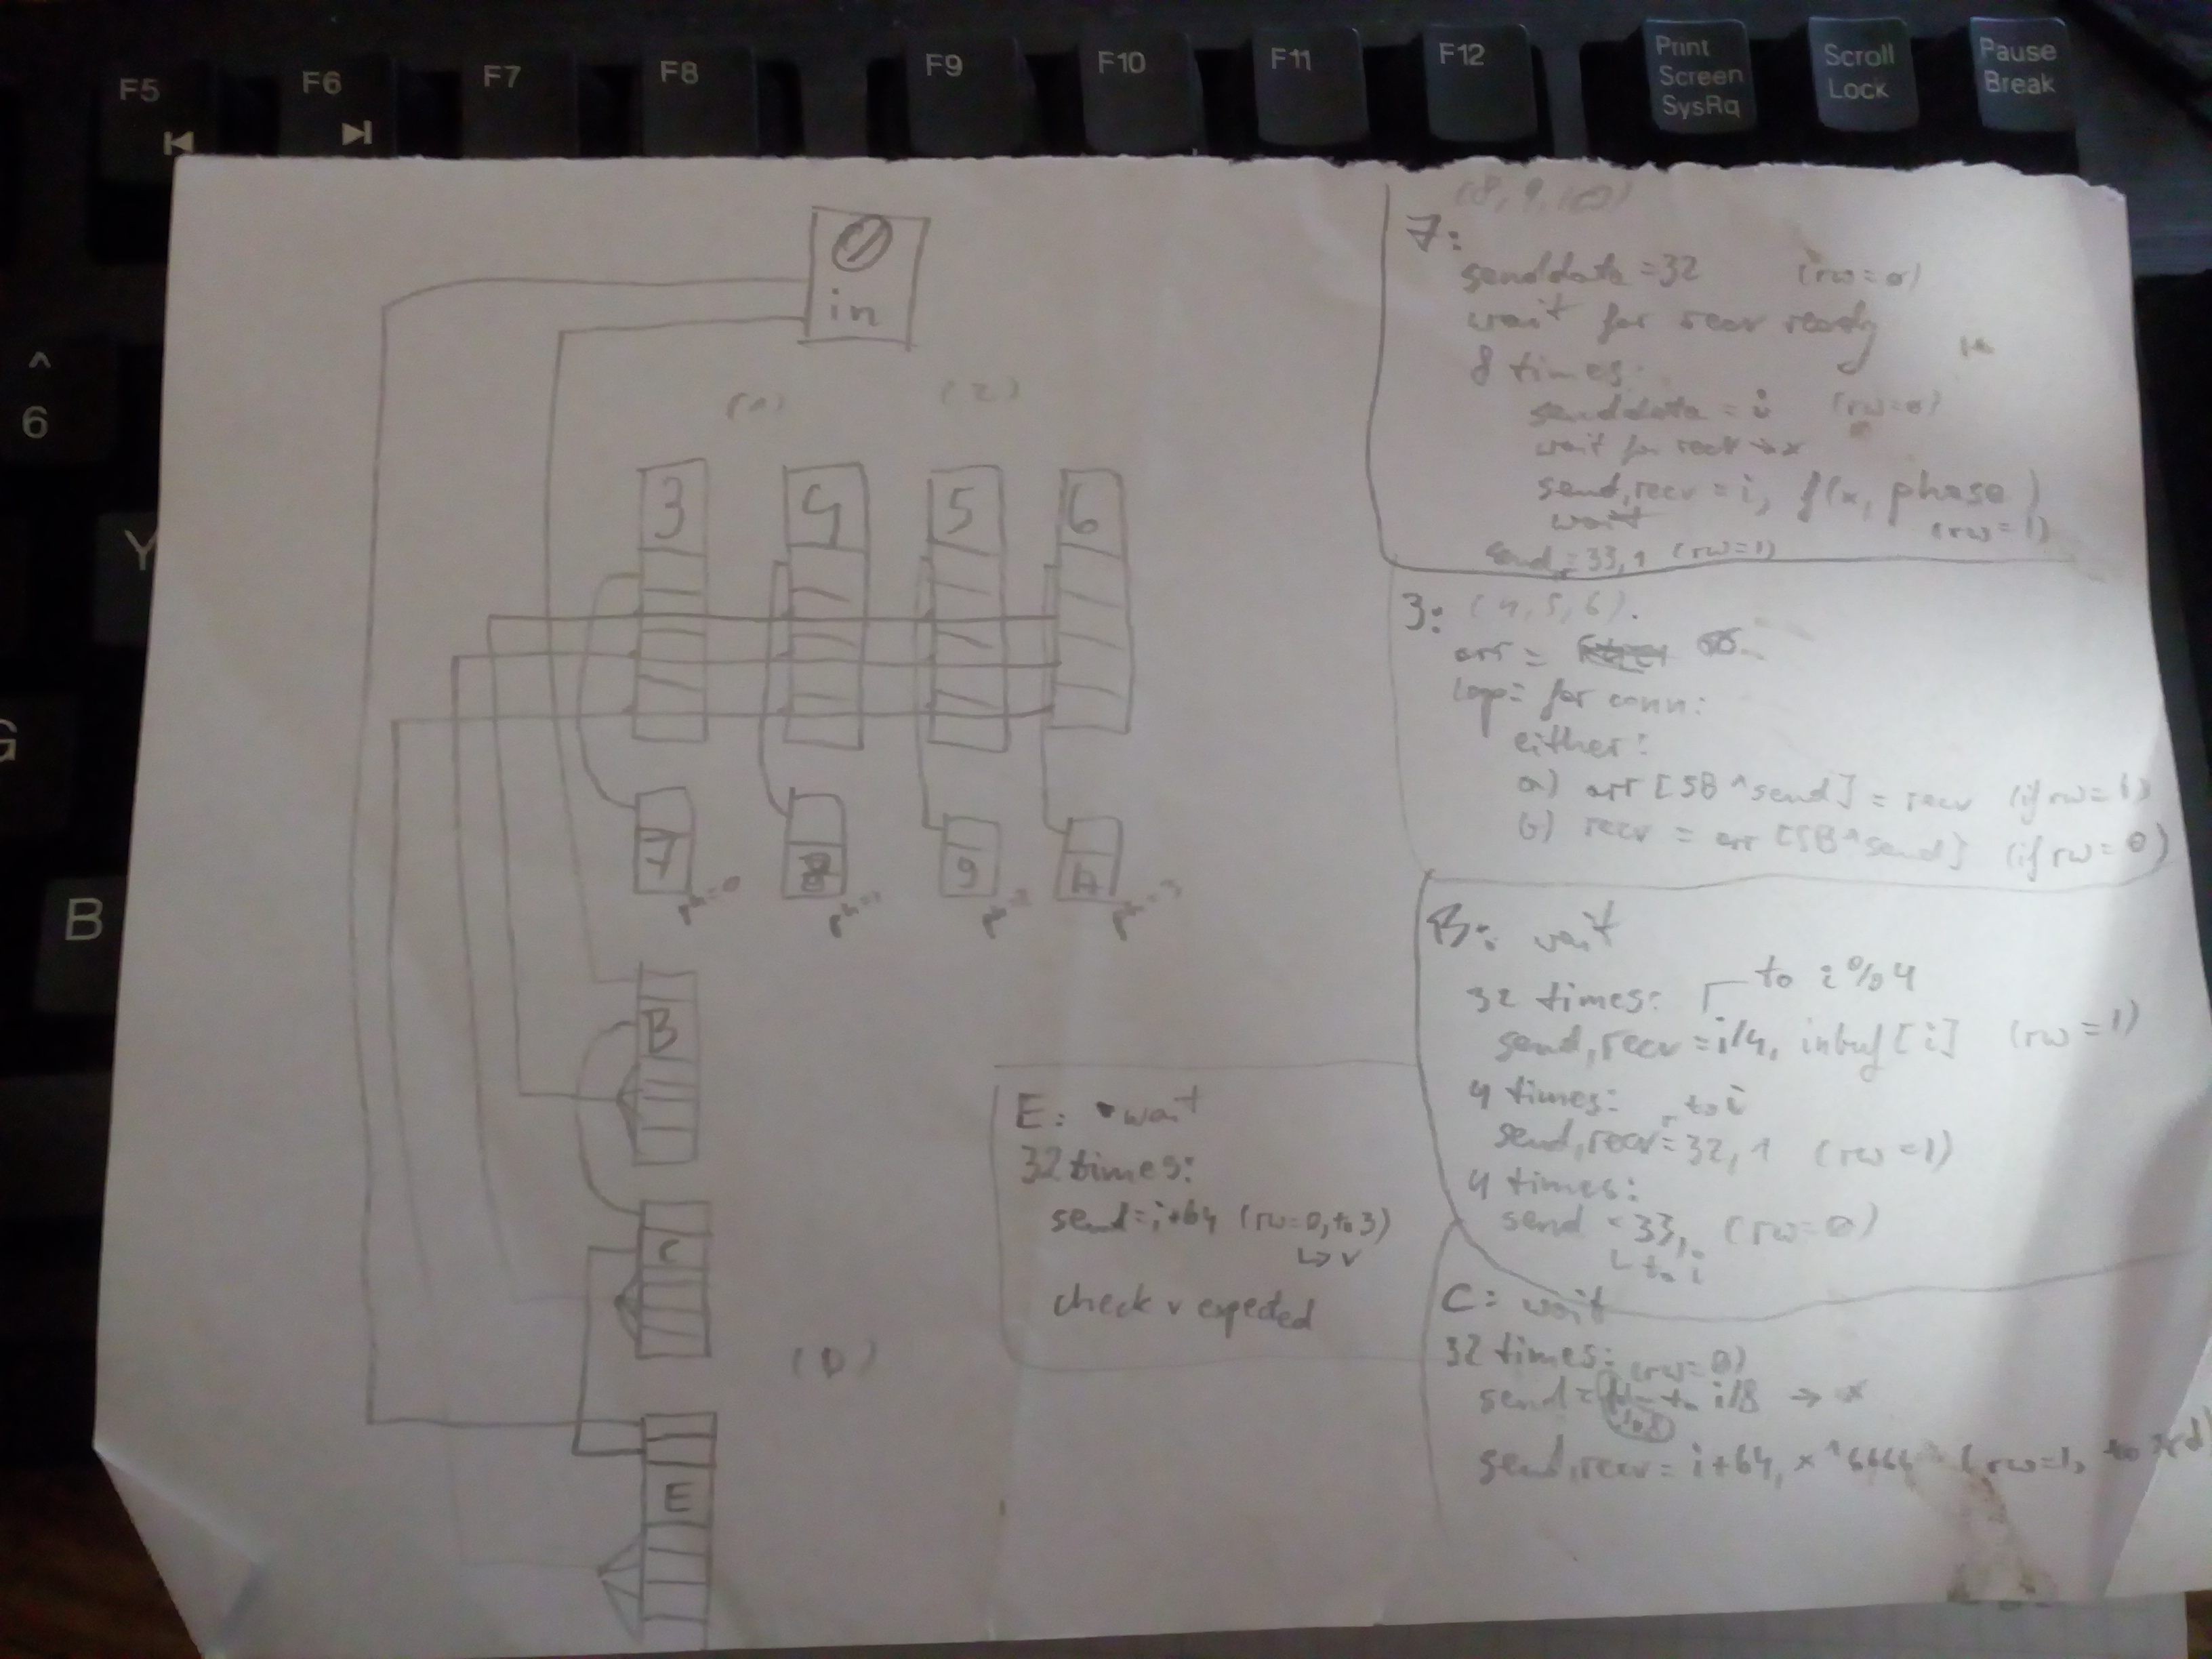 F5
F6
F7
F8
F9
F10
F11
F12
Print
Screen
SysRq
Scroll
Lock
Pause
Break
^
6
Y
G
B
0
in
(1)
(2)
3
4
5
6
7
8
9
A
B
C
(D)
E
7:
senddata = 32 (rw=0)
wait for recv ready
8 times:
senddata = i (rw=0)
wait for recv → x
send, recv = i, f(x, phase)
wait (rw=1)
send = 33, 1 (rw=1)
3: (4, 5, 6).
arr =
loop = for conn:
either:
a) arr [SB ^ send] = recv (if rw=1)
b) recv = arr [SB ^ send] (if rw=0)
B: wait
32 times: to i%4
send, recv = i/4, inbuf [i] (rw=1)
4 times: to i
send, recv = 32, 1 (rw=1)
4 times:
send = 33, (rw=0)
to i
E: wait
32 times:
send = i+64 (rw=0, to 3)
↳ v
check v expected
C: wait
32 times: (rw=0)
send = to i/8 → x
send, recv = i+64, (rw=1, to